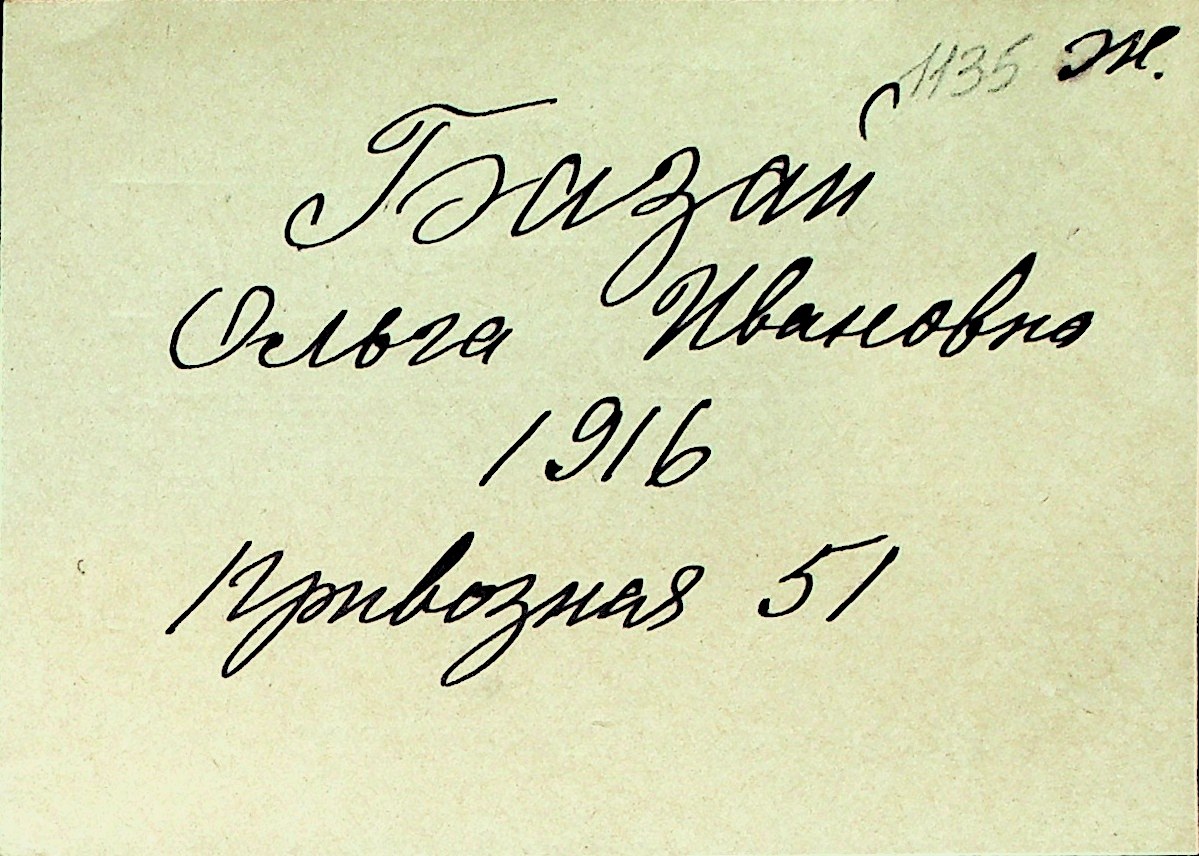 1135 ж.
Базай
Ольга Ивановна
1916
Привозная 51